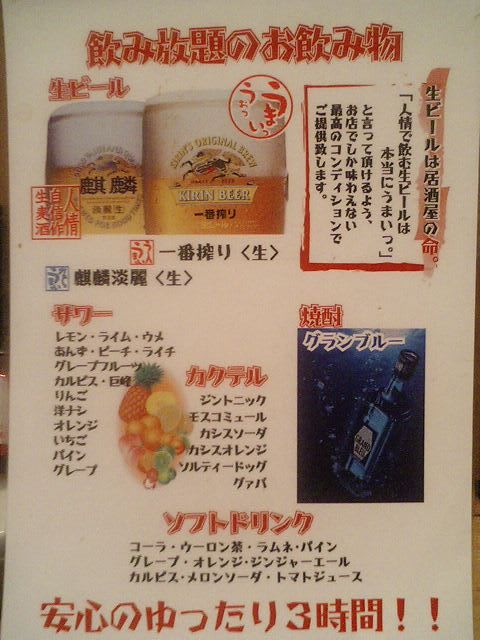 飲み放題のお飲み物
生ビール
うまいっ
生ビールは居酒屋の命。
「人情で飲む生ビールは
本当にうまいっ。」
と言って頂けるよう、
お店でしか味わえない
最高のコンディションで
ご提供致します。
KIRIN'S ORIGINAL BREW
KIRIN BEER
一番搾り
麒麟
淡麗〈生〉
人情
自信作
生麦酒
一番搾り〈生〉
麒麟淡麗〈生〉
サワー
レモン・ライム・ウメ
あんず・ピーチ・ライチ
グレープフルーツ
カルピス・巨峰
りんご
洋ナシ
オレンジ
いちご
パイン
グレープ
カクテル
ジントニック
モスコミュール
カシスソーダ
カシスオレンジ
ソルティードッグ
グァバ
焼酎
グランブルー
GRAND BLEU
ソフトドリンク
コーラ・ウーロン茶・ラムネ・パイン
グレープ・オレンジ・ジンジャーエール
カルピス・メロンソーダ・トマトジュース
安心のゆったり3時間！！